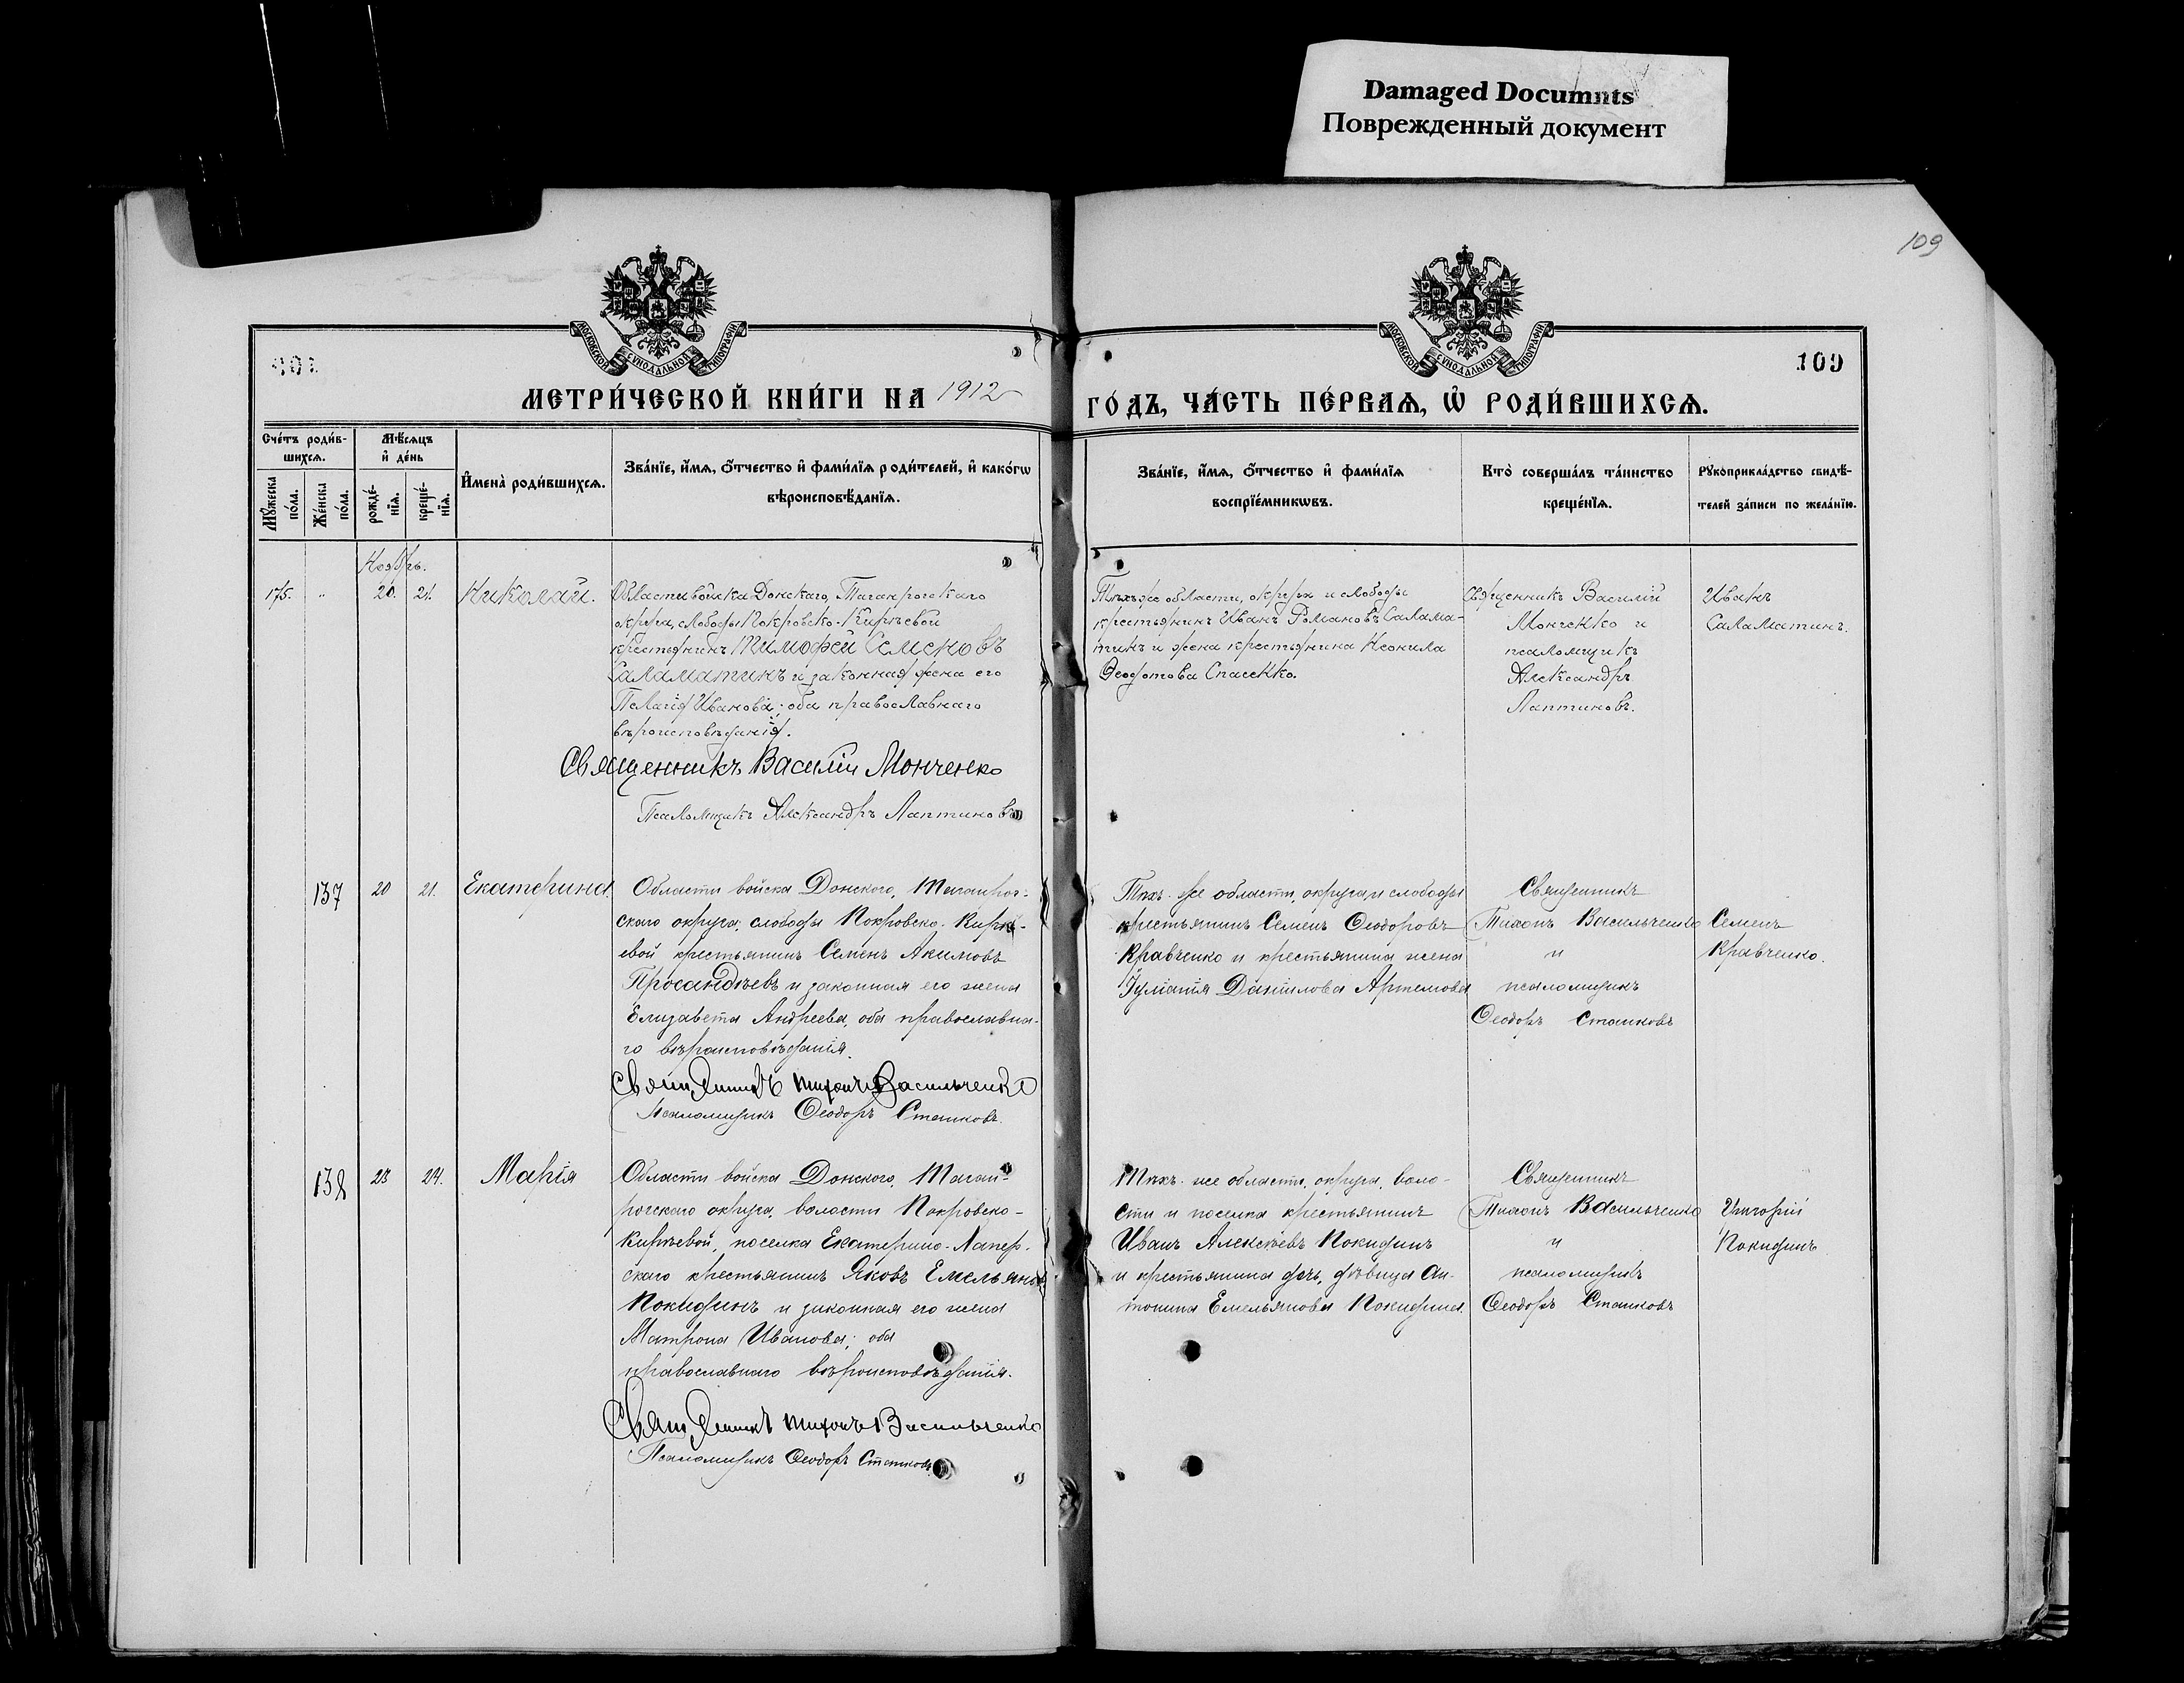 Damaged Documents
Поврежденный документ
109
109
МОСКОВСКОЙ СѴНОДАЛЬНОЙ ТИПОГРАФІИ
МОСКОВСКОЙ СѴНОДАЛЬНОЙ ТИПОГРАФІИ
МЕТРИ́ЧЕСКОЙ КНИ́ГИ НА 1912
ГО́ДЪ, ЧА́СТЬ ПЕ́РВАѦ, Ѡ҆ РОДИ́ВШИХСѦ.
Сче́тъ роди́в-
шихсѧ.
Мѣ́сѧцъ
и҆ де́нь
Мꙋ́жеска
по́ла.
Же́нска
по́ла.
рожде́-
нїѧ.
креще́-
нїѧ.
И҆мена̀ роди́вшихсѧ.
Зва́нїе, и҆́мѧ, ѻ҆́тчество и҆ фами́лїѧ роди́телей, и҆ како́гѡ
вѣроисповѣ́данїѧ.
Зва́нїе, и҆́мѧ, ѻ҆́тчество и҆ фами́лїѧ
воспрїе́мникѡвъ.
Кто̀ соверша́лъ та́инство
креще́нїѧ.
Рꙋкоприкла́дство свидѣ́-
телей за́писи по жела́нїю.
Ноябрь.
175.
"
20.
21.
Николай.
Области войска Донскаго, Таганрогскаго
округа, слободы Покровско-Кирѣевой
крестьянинъ Тимофей Семеновъ
Саламатинъ и законная жена его
Пелагія Иванова; оба православнаго
вѣроисповѣданія.
Священникъ Василій Монченко
Псаломщикъ Александръ Лаптиновъ
Тѣхъ же области, округа и слободы
крестьянинъ Иванъ Романовъ Салама-
тинъ и жена крестьянина Неонила
Ѳеодотова Спасенко.
Священникъ Василій
Монченко и
псаломщикъ
Александръ
Лаптиновъ.
Иванъ
Саламатинъ.
137
20
21.
Екатерина.
Области войска Донского, Таганрог-
скаго округа, слободы Покровско-Кирѣ-
евой крестьянинъ Семенъ Акимовъ
Просандѣевъ и законная его жена
Елизавета Андреева, оба православна-
го вѣроисповѣданія.
Священникъ Тихонъ Васильченко
Псаломщикъ Ѳеодоръ Сташковъ.
Тѣхъ-же области, округа, и слободы
крестьянинъ Семенъ Ѳеодоровъ
Кравченко и крестьянина жена
Іуліанія Даніилова Артемова
Священникъ
Тихонъ Васильченко
и
псаломщикъ
Ѳеодоръ Сташковъ
Семенъ
Кравченко.
138
23
24.
Марія
Области войска Донского, Таган-
рогскаго округа, волости Покровско-
Кирѣевой, поселка Екатерино-Лапер-
скаго крестьянинъ Яковъ Емельяновъ
Покидинъ и законная его жена
Матрона Иванова; оба
православнаго вѣроисповѣданія.
Священникъ Тихонъ Васильченко
Псаломщикъ Ѳеодоръ Сташковъ
Тѣхъ-же области, округа, воло-
сти и поселка крестьянинъ
Иванъ Алексѣевъ Покидинъ
и крестьянина дочь, дѣвица Ан-
тонина Емельянова Покидина.
Священникъ
Тихонъ Васильченко
и
псаломщикъ
Ѳеодоръ Сташковъ
Покидинъ